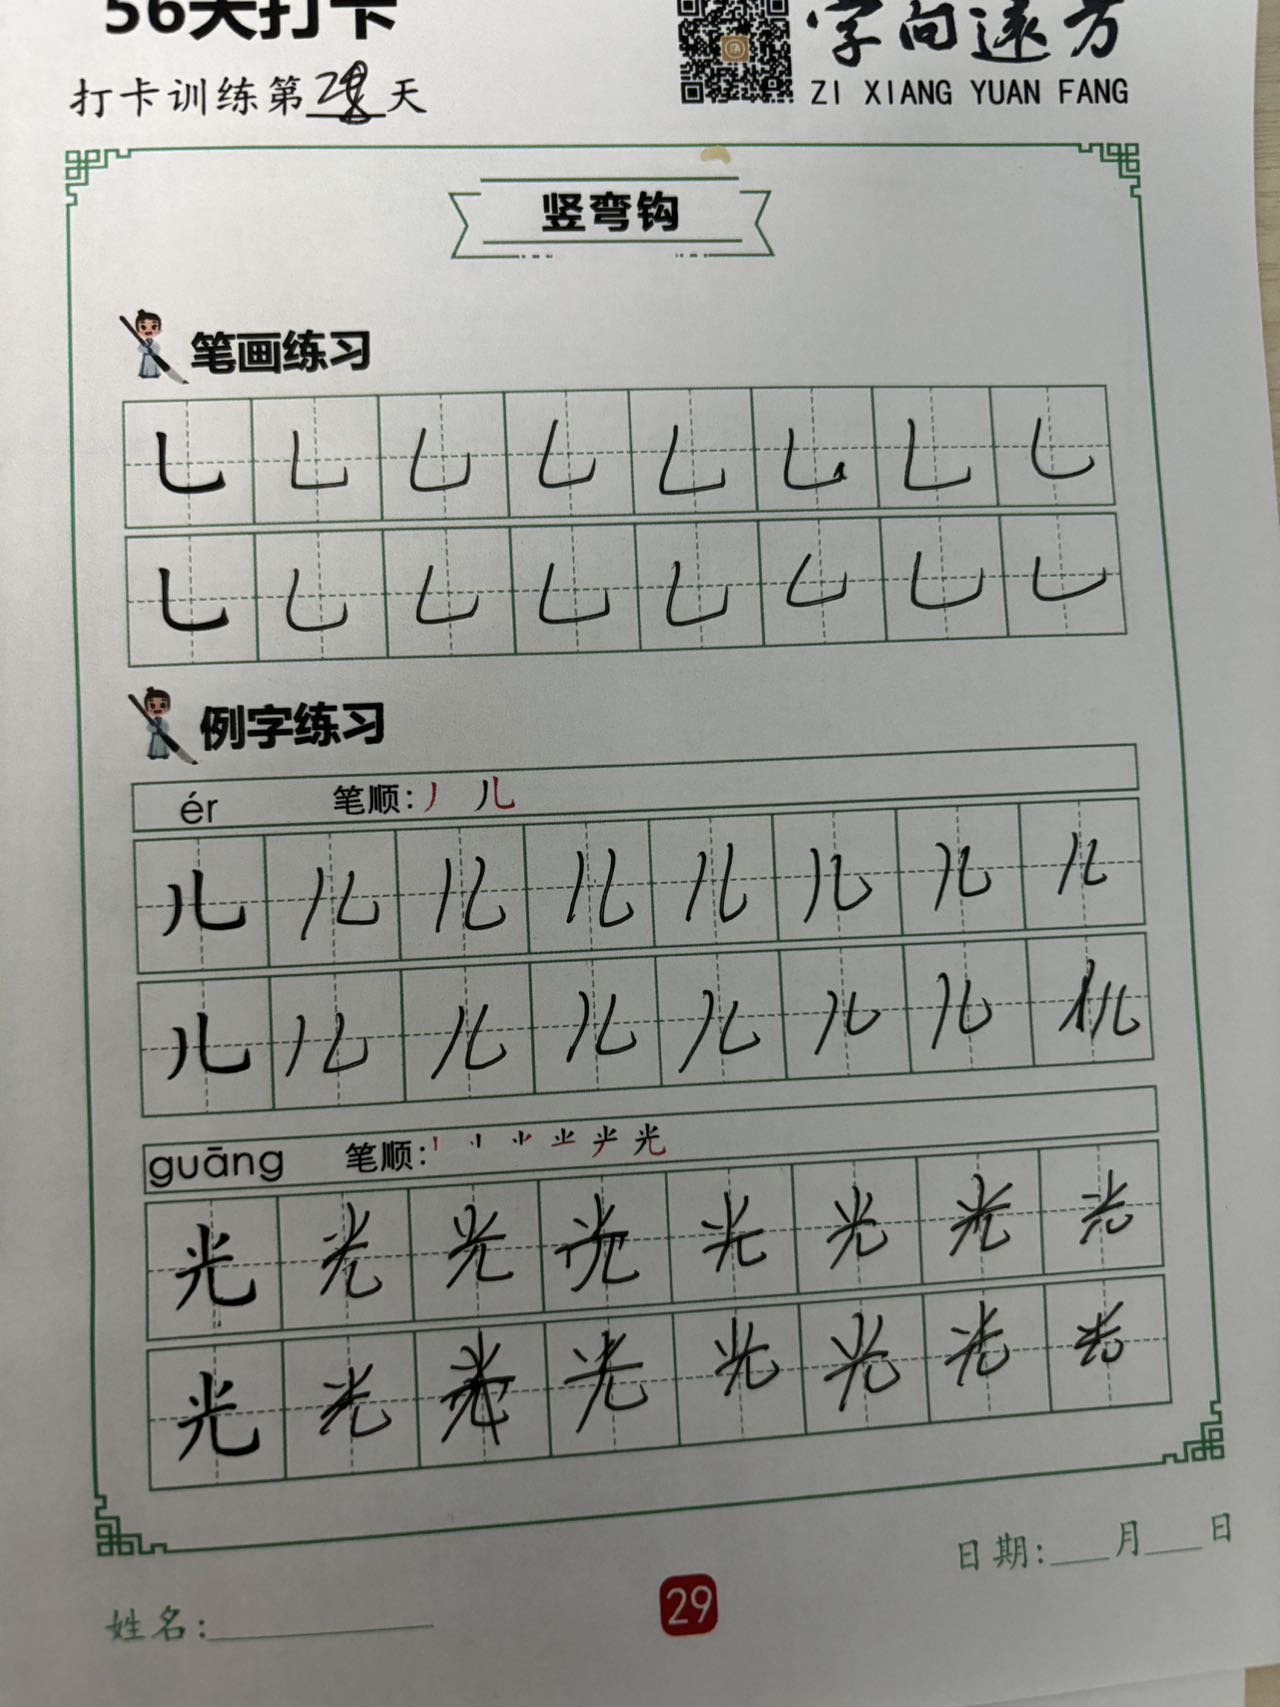 56天打卡
字向远方
打卡训练第28天
ZI XIANG YUAN FANG
竖弯钩
笔画练习
乚 乚 乚 乚 乚 乚 乚 乚
乚 乚 乚 乚 乚 乚 乚 乚
例字练习
ér 笔顺: 丿 儿
儿 儿 儿 儿 儿 儿 儿 儿
儿 儿 儿 儿 儿 儿 儿
guāng 笔顺:
光 光 光 光 光 光 光 光
光 光 光 光 光 光 光
日期:___月___日
姓名:
29